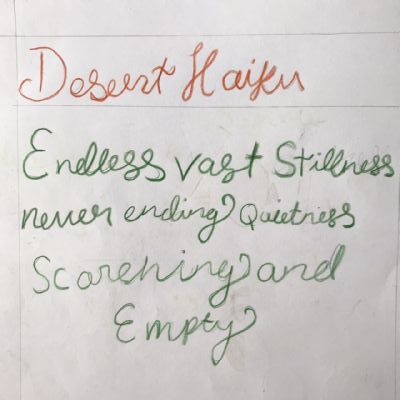 Desert Haiku
Endless vast Stillness
never ending Quietness
Scorching and
Empty